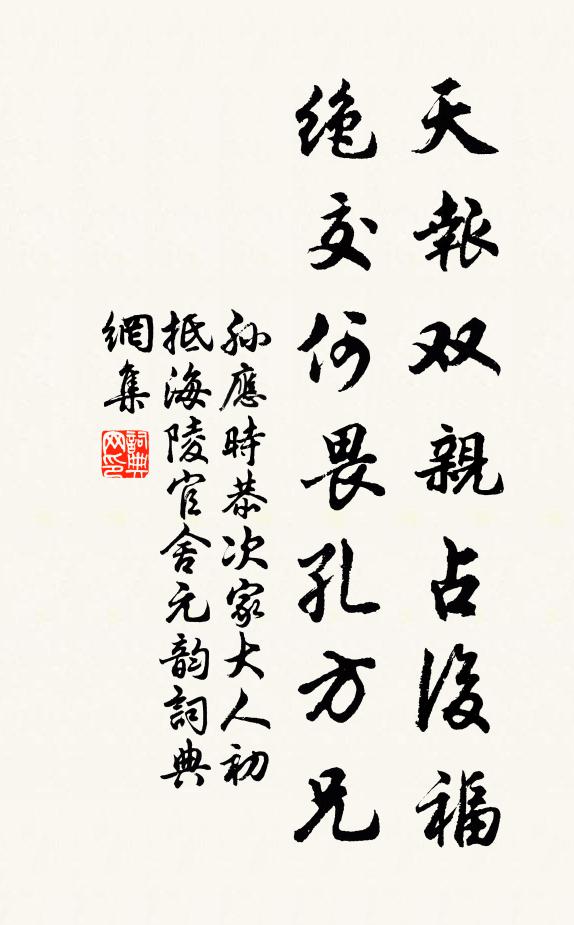 天報双親占後福
绝交何畏孔方兄
孙應時恭次家大人初
抵海陵官舍元韵詞典
網集
詞典网印